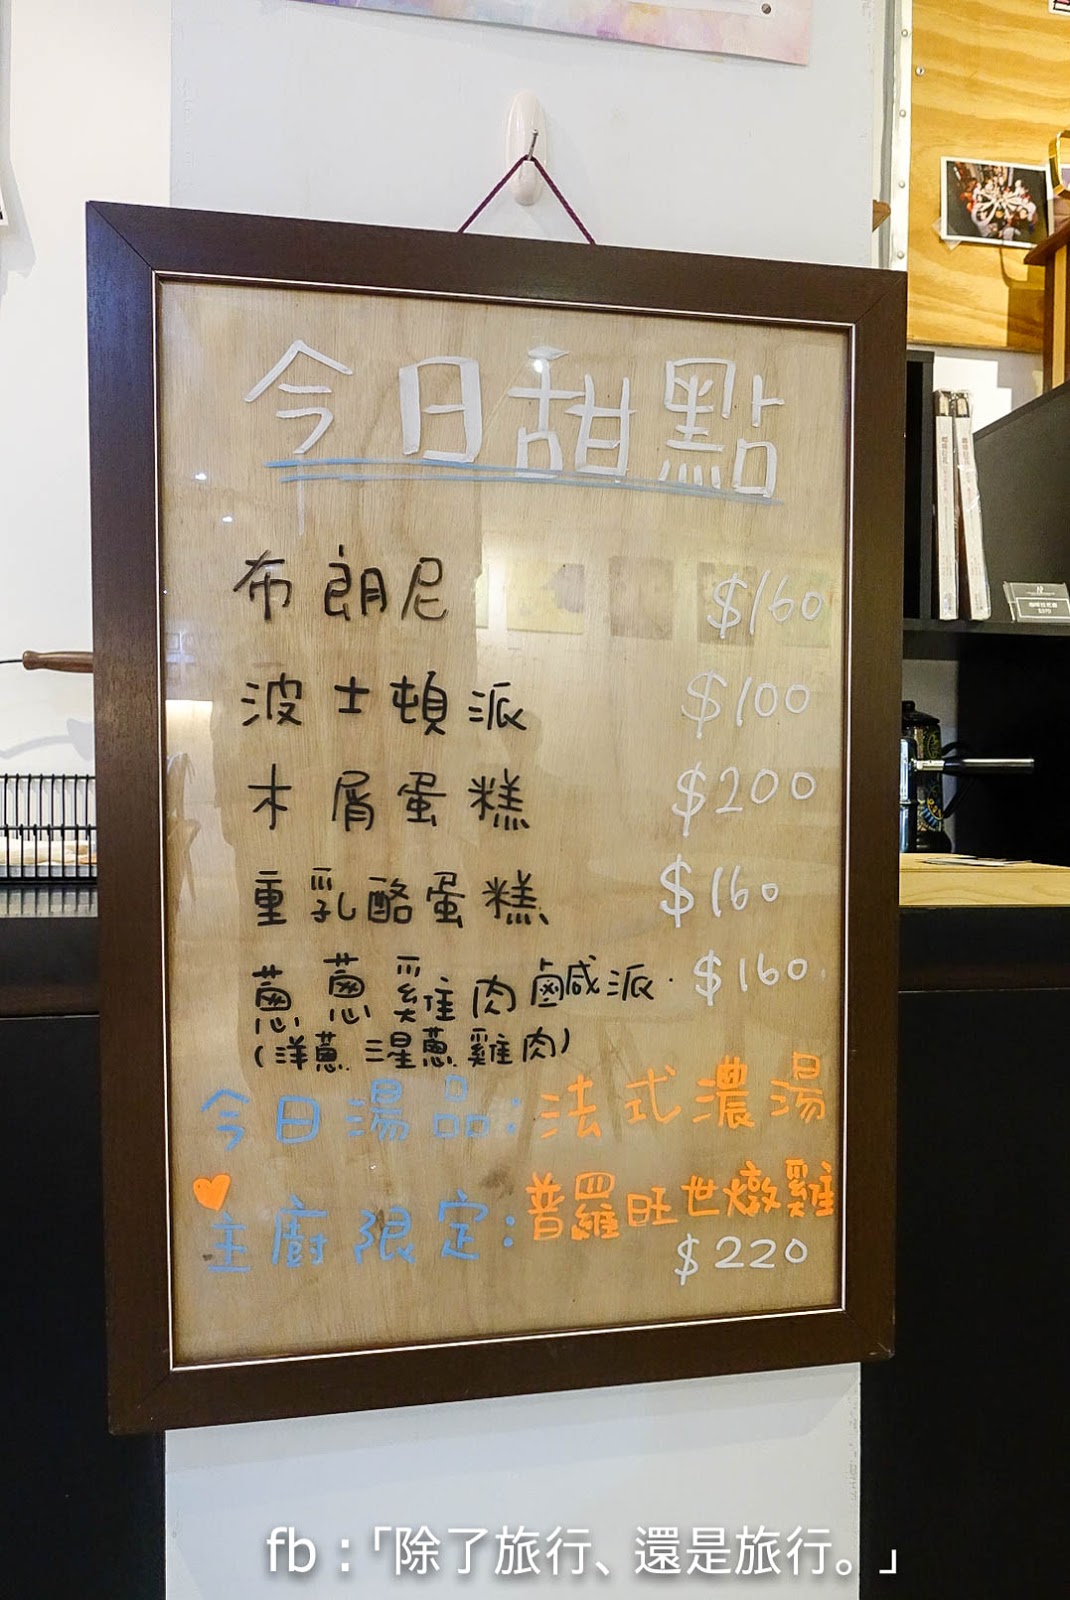 今日甜點
布朗尼 $160
波士頓派 $100
木屑蛋糕 $200
重乳酪蛋糕 $160
蔥蔥雞肉鹹派. $160.
(洋蔥 三星蔥 雞肉)
今日湯品:法式濃湯
主廚限定:普羅旺世燉雞
$220
fb:「除了旅行、還是旅行。」